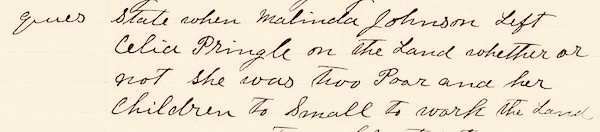 ques State when Malinda Johnson Left
Celia Pringle on the Land whether or
not she was two Poor and her
Children to Small to work the Land